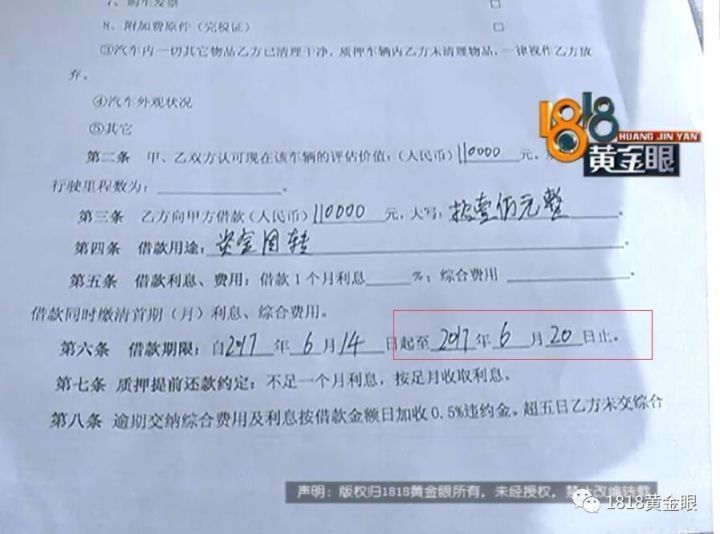 7、购车发票 □
8、附加费原件（完税证） □
③汽车内一切其它物品乙方已清理干净，质押车辆内乙方未清理物品，一律视作乙方放
弃。
④汽车外观状况
⑤其它
1818
HUANG JIN YAN
黄金眼
第二条 甲、乙双方认可现在该车辆的评估价值：（人民币）110000元。
行驶里程数为：
第三条 乙方向甲方借款（人民币）110000元，大写：拾壹佰元整
第四条 借款用途：资金周转
第五条 借款利息、费用：借款1个月利息____%；综合费用
借款同时缴清首期（月）利息、综合费用。
第六条 借款期限：自2017年6月14日起至2017年6月20日止。
第七条 质押提前还款约定：不足一个月利息，按足月收取利息。
第八条 逾期交纳综合费用及利息按借款金额日加收0.5%违约金。超五日乙方未交综合
声明：版权归1818黄金眼所有，未经授权，禁止改编转载
1818黄金眼